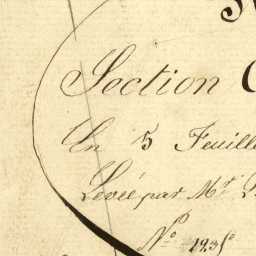 Section
En 5 Feuille
Levée par Mr
No 1235